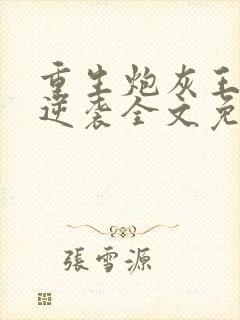 重生炮灰王
逆袭全文免
張雪源